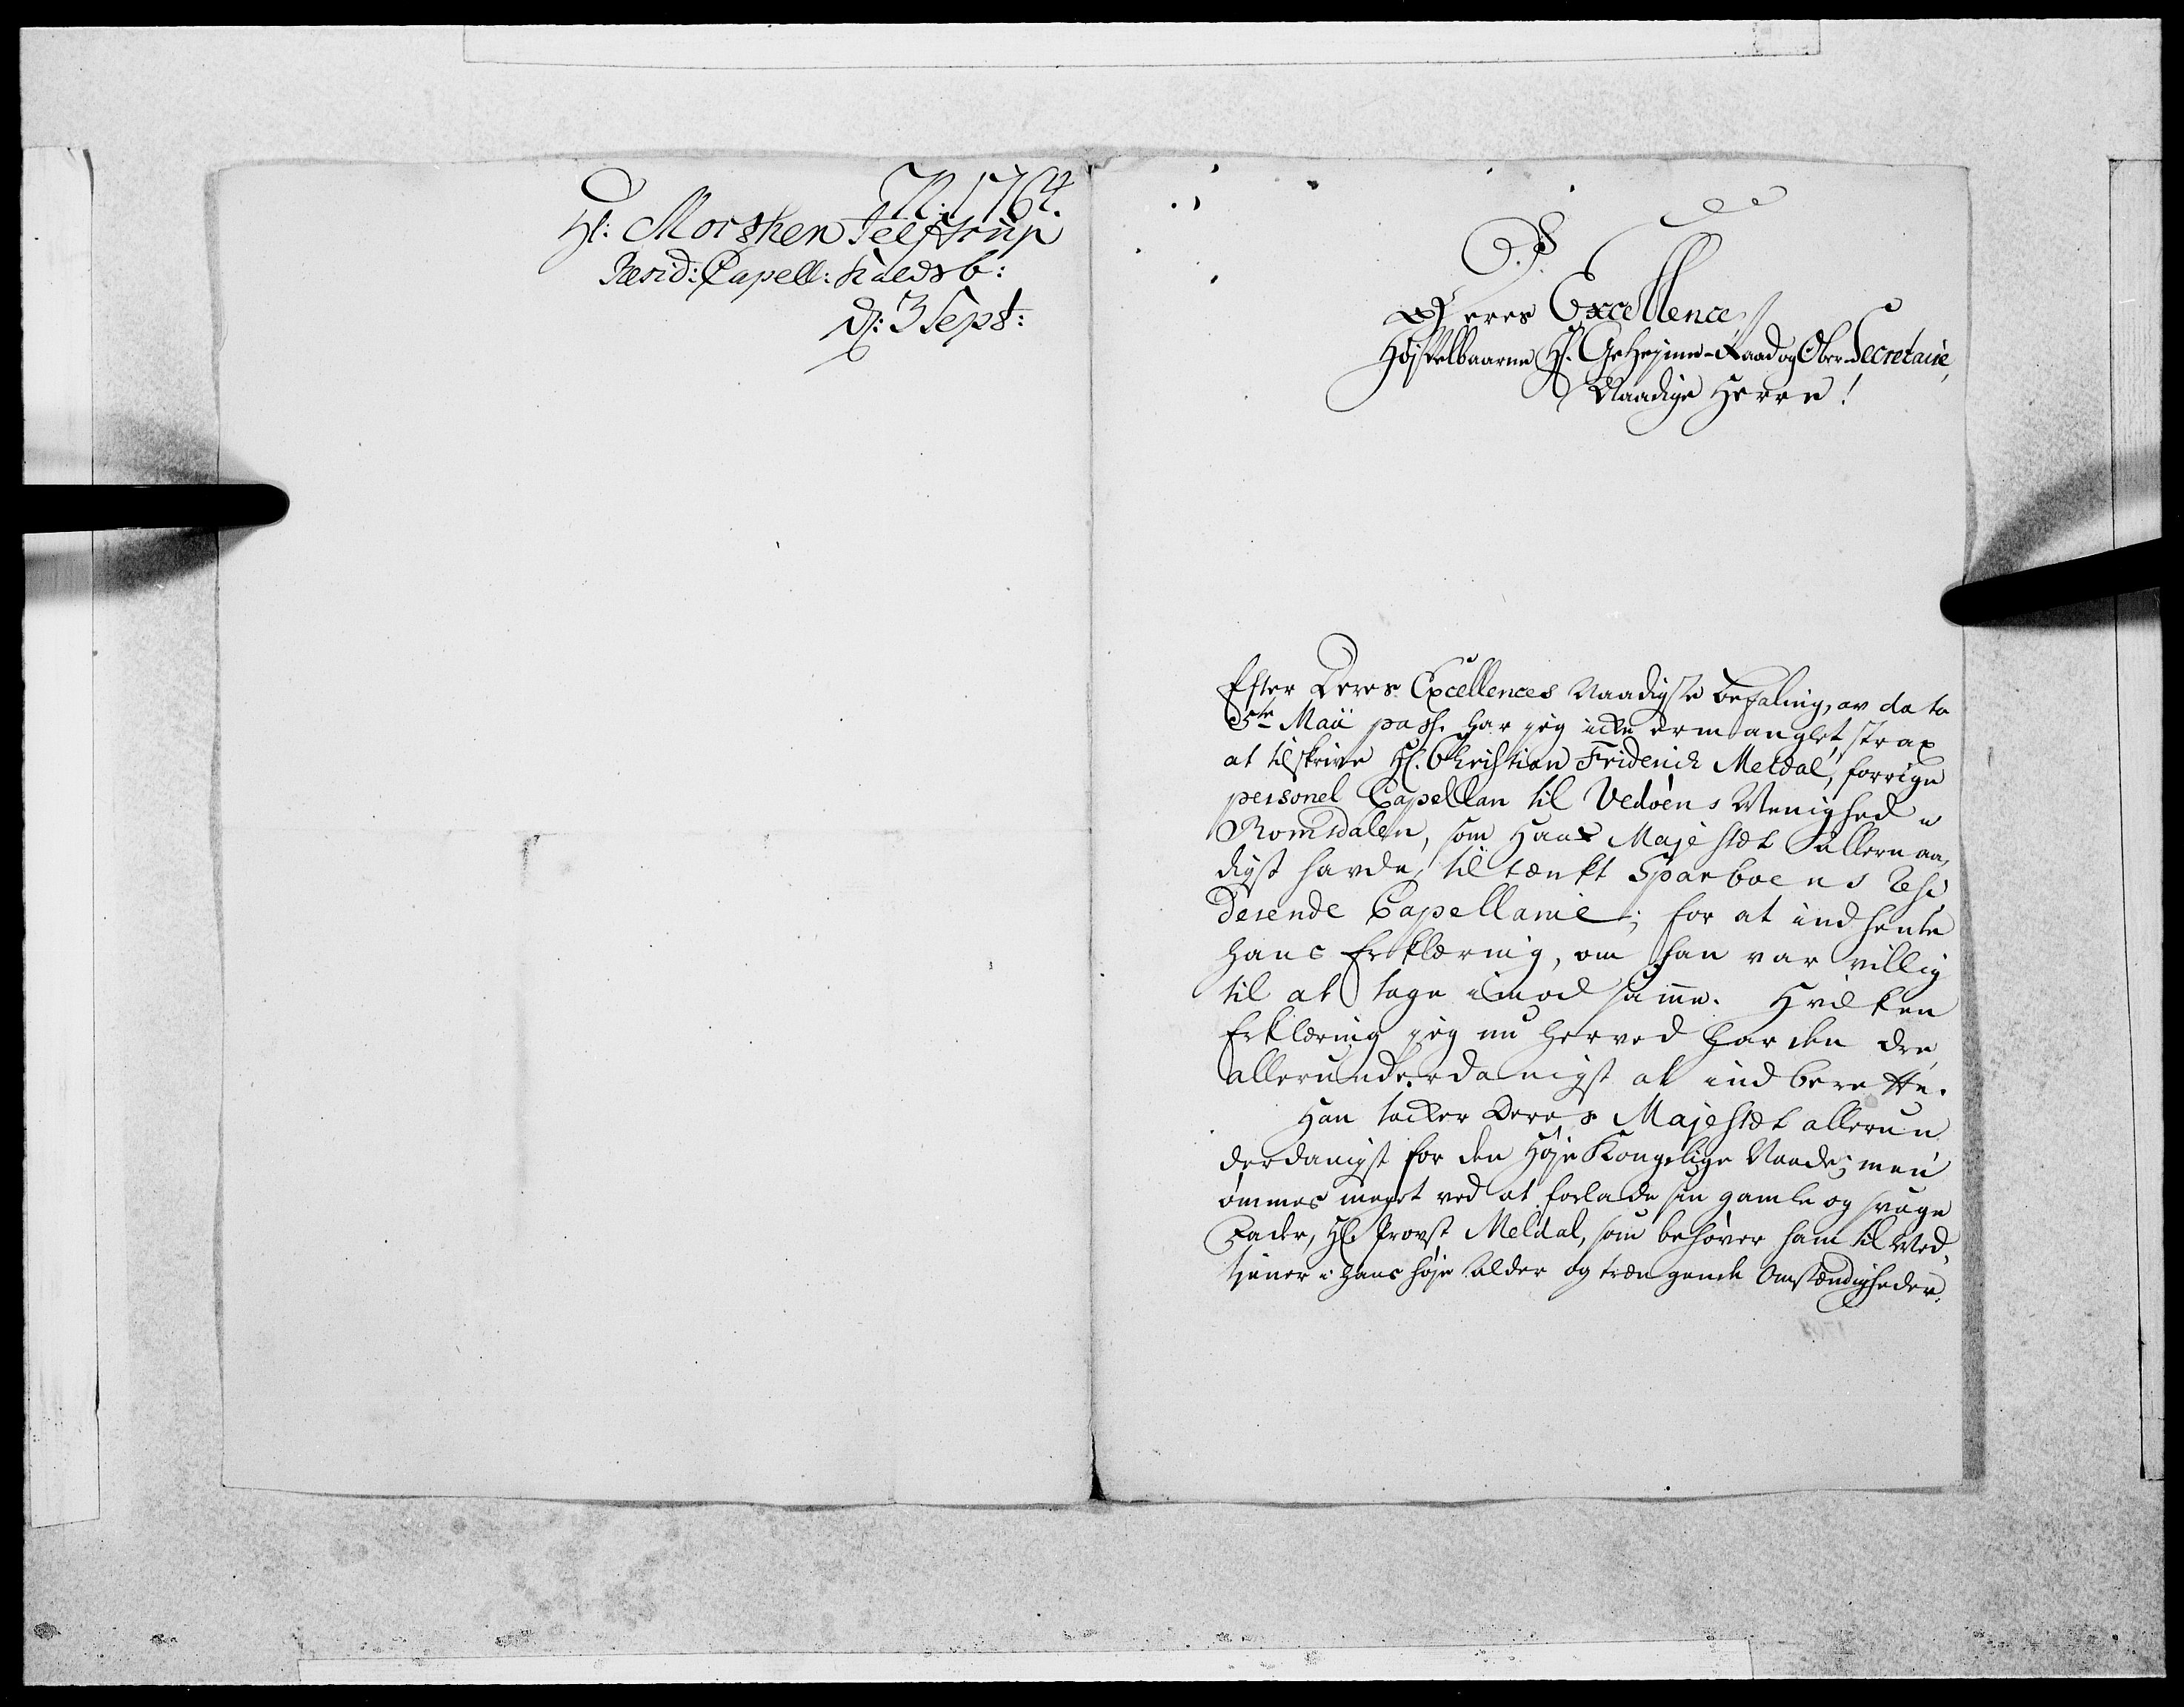 N: 1764.
Hl: Morthen Feiftrup
Resid: Capell: kaldsb:
d: 3 Sept:
P. S.
Deres Excellence
Højvelbaarne Hr. Geheyme-Raad og Ober-Secretaire,
Naadige Herre!
Efter Deres Excellences Naadigste befaling, av dato
5te Maii pass. har jeg icke ermanglet, strax
at tilskrive Hl. Christian Friderich Meldal, forrige
personel Capellan til Vedøens Menighed i
Romsdalen, som Hans Majestæt allernaa,
digst havde til tænkt Sparboens Resi,
derende Capellanie; for at indhente
hans Erklæring, om han var villig
til at tage imod samme. Hvilken
Erklæring jeg nu herved har den Ære
allerunderdanigst at indberette.
Han tacker Deres Majestæt allerun
derdanigst for den Høje Kongelige Naade; men
ømmes meget ved at forlade sin gamle og svage
Fader, Hl. Provst Meldal, som behøver ham til Med,
tjener i hans høje Alder og trængende Omstændigheder.